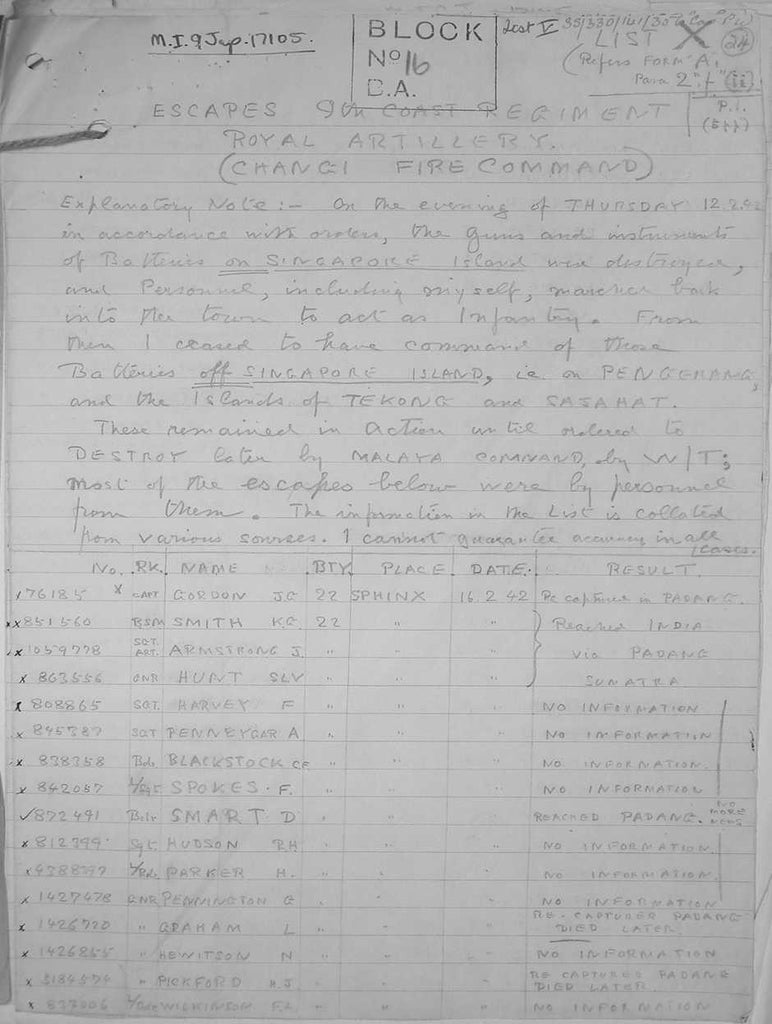 M.I.9 Jap. 17105.
BLOCK
No 16
C.A.
List V
LIST X
24
(Refers FORM "A",
Para 2 "f" (ii)
P.1.
ESCAPES 9th COAST REGIMENT
ROYAL ARTILLERY.
(CHANGI FIRE COMMAND)
Explanatory Note :- On the evening of THURSDAY 12.2.42
in accordance with orders, the guns and instruments
of Batteries on SINGAPORE Island were destroyed,
and Personnel, including myself, marched back
into the town to act as Infantry. From
then I ceased to have command of those
Batteries off SINGAPORE ISLAND, i.e. on PENGERANG,
and the Islands of TEKONG and SAJAHAT.
These remained in action until ordered to
DESTROY later by MALAYA COMMAND, by W/T;
most of the escapes below were by personnel
from them. The information in the List is collated
from various sources. I cannot guarantee accuracy in all
cases.
No. RK. NAME BTY PLACE DATE. RESULT.
x 76185 x CAPT GORDON J.G 22 SPHINX 16.2.42 Re captured in PADANG.
xx 851560 BSM SMITH K.G. 22 " " Reached INDIA
x 1059778 SGT. ART. ARMSTRONG J. " " " via PADANG
x 863556 GNR HUNT SLV " " " SUMATRA
x 808865 SGT. HARVEY F " " " NO INFORMATION
x 845387 SGT PENNEYCAR A " " " NO INFORMATION
x 838358 Bdr BLACKSTOCK " " " NO INFORMATION.
x 842057 L/Sgt SPOKES. F. " " " NO INFORMATION
✓ 872491 Bdr SMART D " " " REACHED PADANG. NO MORE NEWS
x 812799 Sgt HUDSON R.H " " " NO INFORMATION.
x PARKER H. " " " NO INFORMATION.
x 1427478 GNR PENNINGTON G " " " NO INFORMATION
x 1426720 " GRAHAM L " " " RE-CAPTURED PADANG
DIED LATER.
x 1426855 " HEWITSON N " " " NO INFORMATION
x 3184574 " PICKFORD H.J " " " RE CAPTURED PADANG
DIED LATER.
x WILKINSON F.L " " " NO INFORMATION